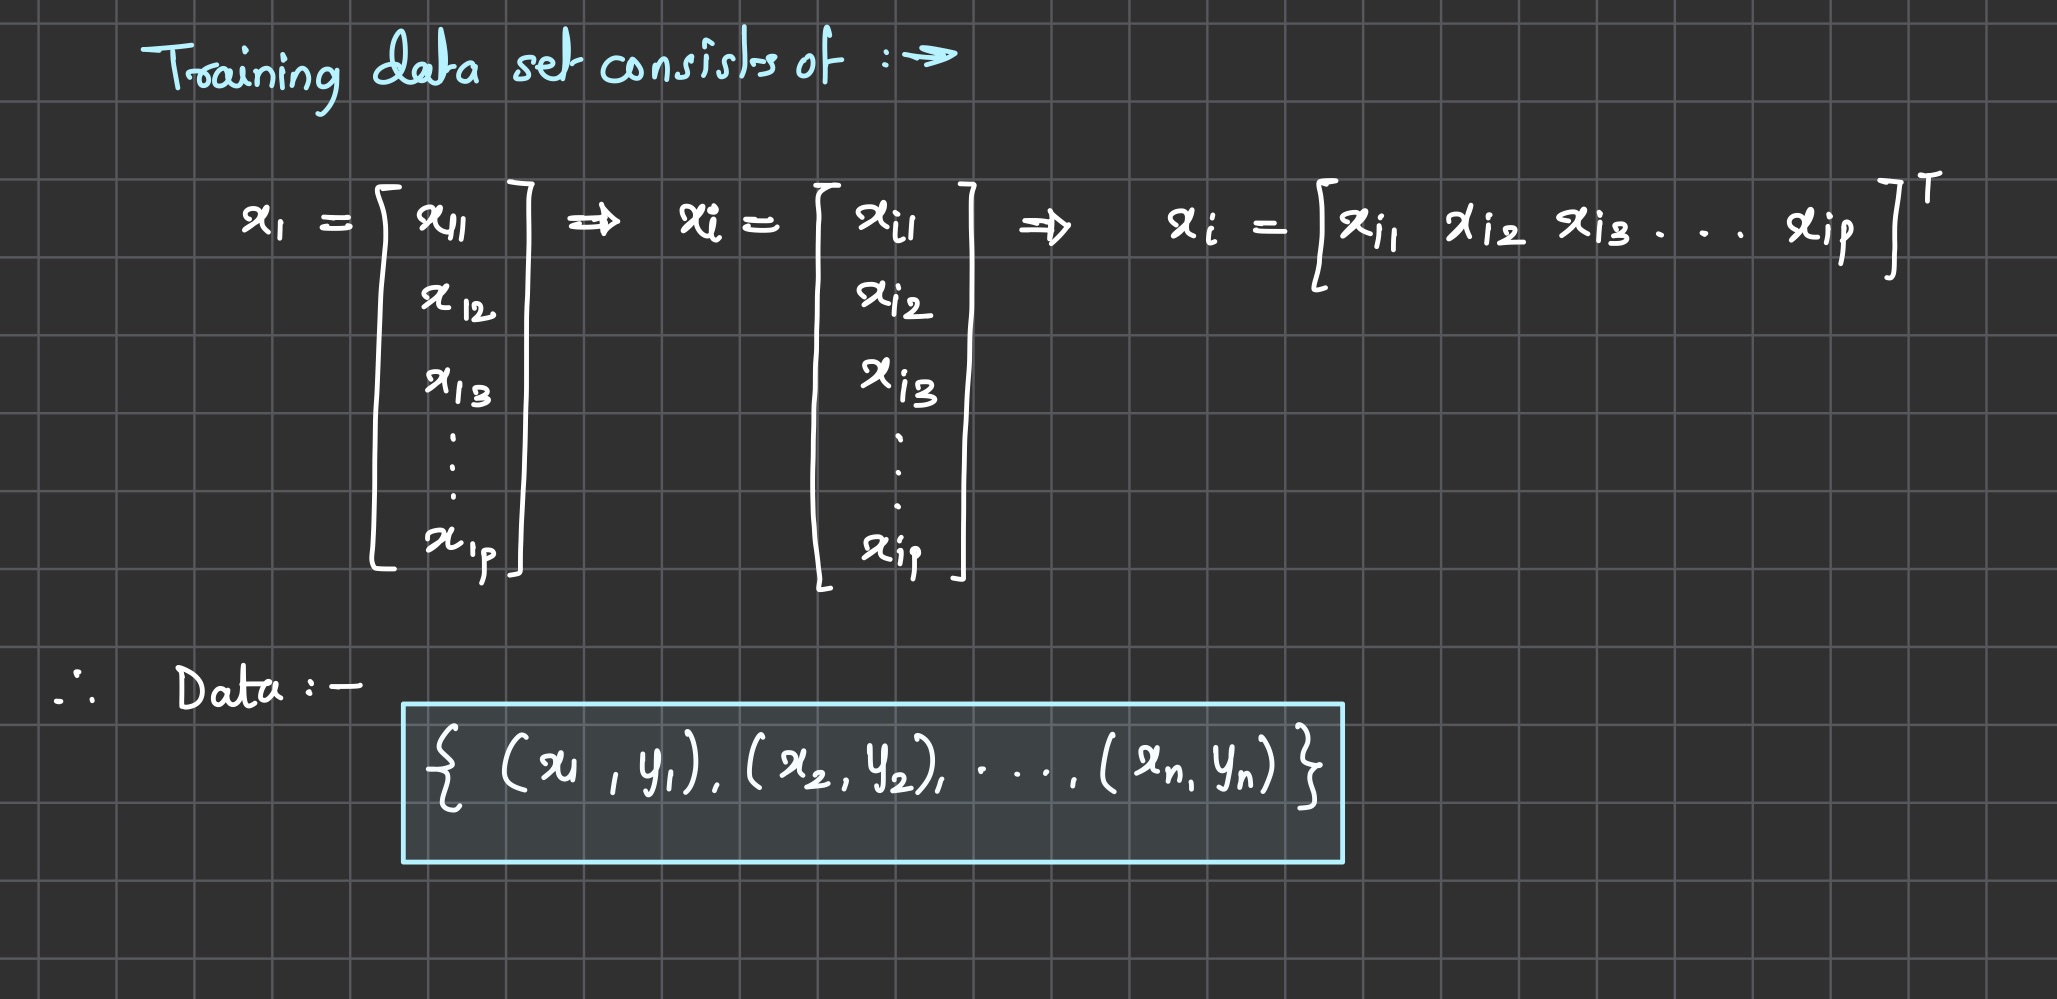 Training data set consists of :→
x₁ = [ x₁₁ ⇒ xᵢ = [ xᵢ₁ ⇒ xᵢ = [ xᵢ₁ xᵢ₂ xᵢ₃ . . . xᵢₚ ]ᵀ
x₁₂ xᵢ₂
x₁₃ xᵢ₃
⋮ ⋮
x₁ₚ ] xᵢₚ ]
∴ Data :-
{ (x₁ , y₁), (x₂, y₂), . . . , (xₙ, yₙ) }